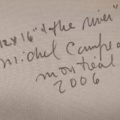 12x16 "the river"
michel Campeau
montréal
2006